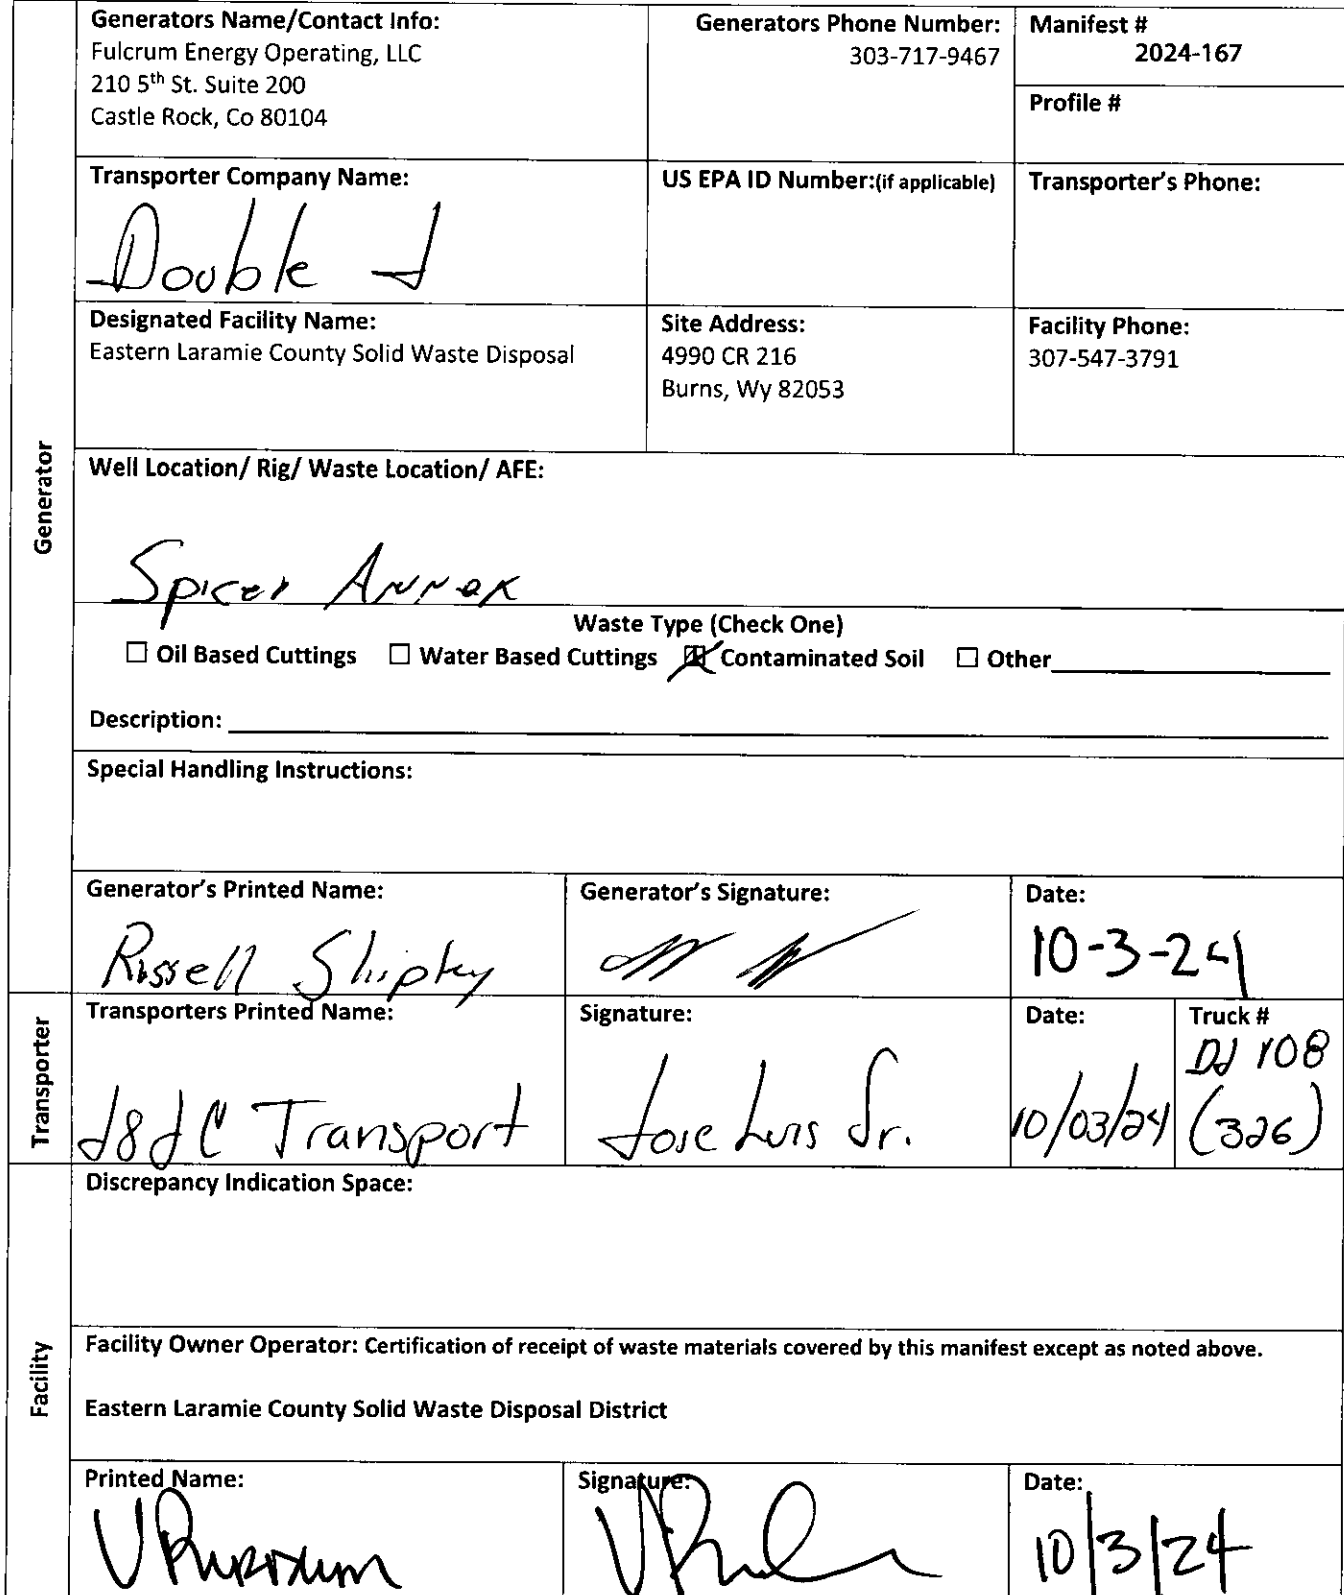 Generators Name/Contact Info:
Fulcrum Energy Operating, LLC
210 5th St. Suite 200
Castle Rock, Co 80104
Generators Phone Number:
303-717-9467
Manifest #
2024-167
Profile #
Transporter Company Name:
Double J
US EPA ID Number:(if applicable)
Transporter's Phone:
Designated Facility Name:
Eastern Laramie County Solid Waste Disposal
Site Address:
4990 CR 216
Burns, Wy 82053
Facility Phone:
307-547-3791
Generator
Well Location/ Rig/ Waste Location/ AFE:
Spicer Annex
Waste Type (Check One)
☐ Oil Based Cuttings ☐ Water Based Cuttings ☒ Contaminated Soil ☐ Other
Description:
Special Handling Instructions:
Generator's Printed Name:
Russell Shipley
Generator's Signature:
Date:
10-3-24
Transporter
Transporters Printed Name:
J&JC Transport
Signature:
Jose Luis Sr.
Date:
10/03/24
Truck #
DJ 108
(326)
Facility
Discrepancy Indication Space:
Facility Owner Operator: Certification of receipt of waste materials covered by this manifest except as noted above.
Eastern Laramie County Solid Waste Disposal District
Printed Name:
Signature:
Date:
10/3/24